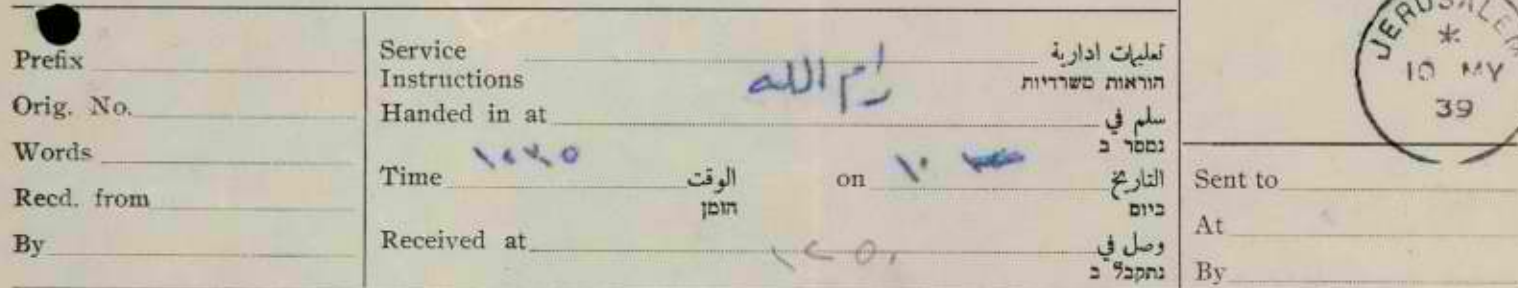 Prefix
Orig. No.
Words
Recd. from
By
Service Instructions
تعليمات ادارية
הוראות משרדיות
Handed in at رام الله سلم في
נמסר ב
Time الوقت
הזמן
on ١٠ التاريخ
ביום
Received at ١٢٥٠ وصل في
נתקבל ב
JERUSALEM
10 MY
39
Sent to
At
By